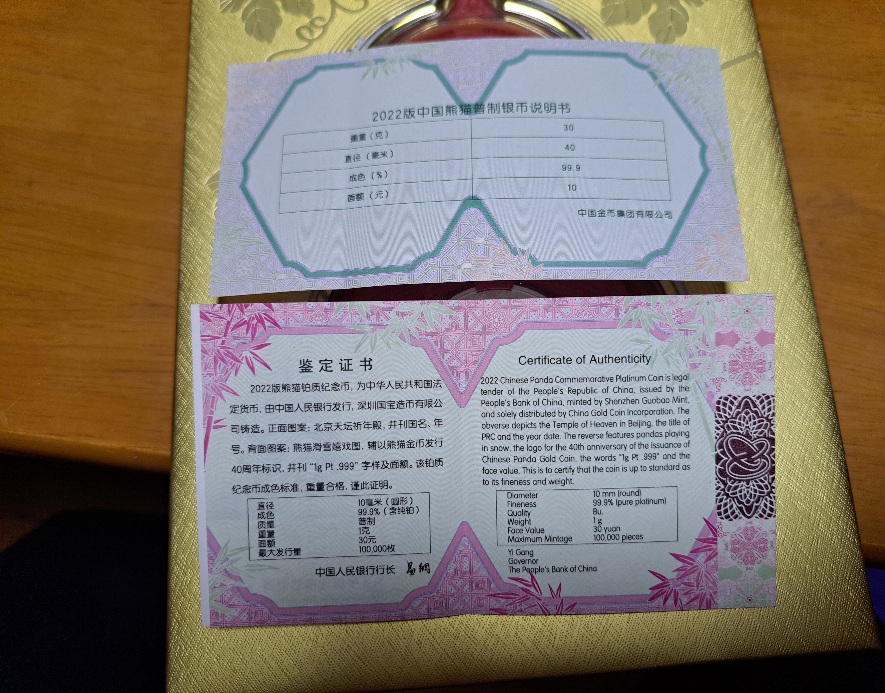 2022版中国熊猫普制银币说明书
重量（克） 30
直径（毫米） 40
成色（%） 99.9
面额（元） 10
中国金币集团有限公司
鉴定证书
2022版熊猫铂质纪念币，为中华人民共和国法
定货币，由中国人民银行发行，深圳国宝造币有限公
司铸造。正面图案：北京天坛祈年殿，并刊国名、年
号。背面图案：熊猫滑雪嬉戏图，辅以熊猫金币发行
40周年标识，并刊“1g Pt .999”字样及面额。该铂质
纪念币成色标准，重量合格，谨此证明。
直径 10毫米（圆形）
成色 99.9%（含纯铂）
质量 普制
重量 1克
面额 30元
最大发行量 100,000枚
中国人民银行行长 易纲
Certificate of Authenticity
2022 Chinese Panda Commemorative Platinum Coin is legal
tender of the People's Republic of China, issued by the
People's Bank of China, minted by Shenzhen Guobao Mint,
and solely distributed by China Gold Coin Incorporation. The
obverse depicts the Temple of Heaven in Beijing, the title of
PRC and the year date. The reverse features pandas playing
in snow, the logo for the 40th anniversary of the issuance of
Chinese Panda Gold Coin, the words "1g Pt .999" and the
face value. This is to certify that the coin is up to standard as
to its fineness and weight.
Diameter 10 mm (round)
Fineness 99.9% (pure platinum)
Quality Bu.
Weight 1 g
Face Value 30 yuan
Maximum Mintage 100,000 pieces
Yi Gang
Governor
The People's Bank of China